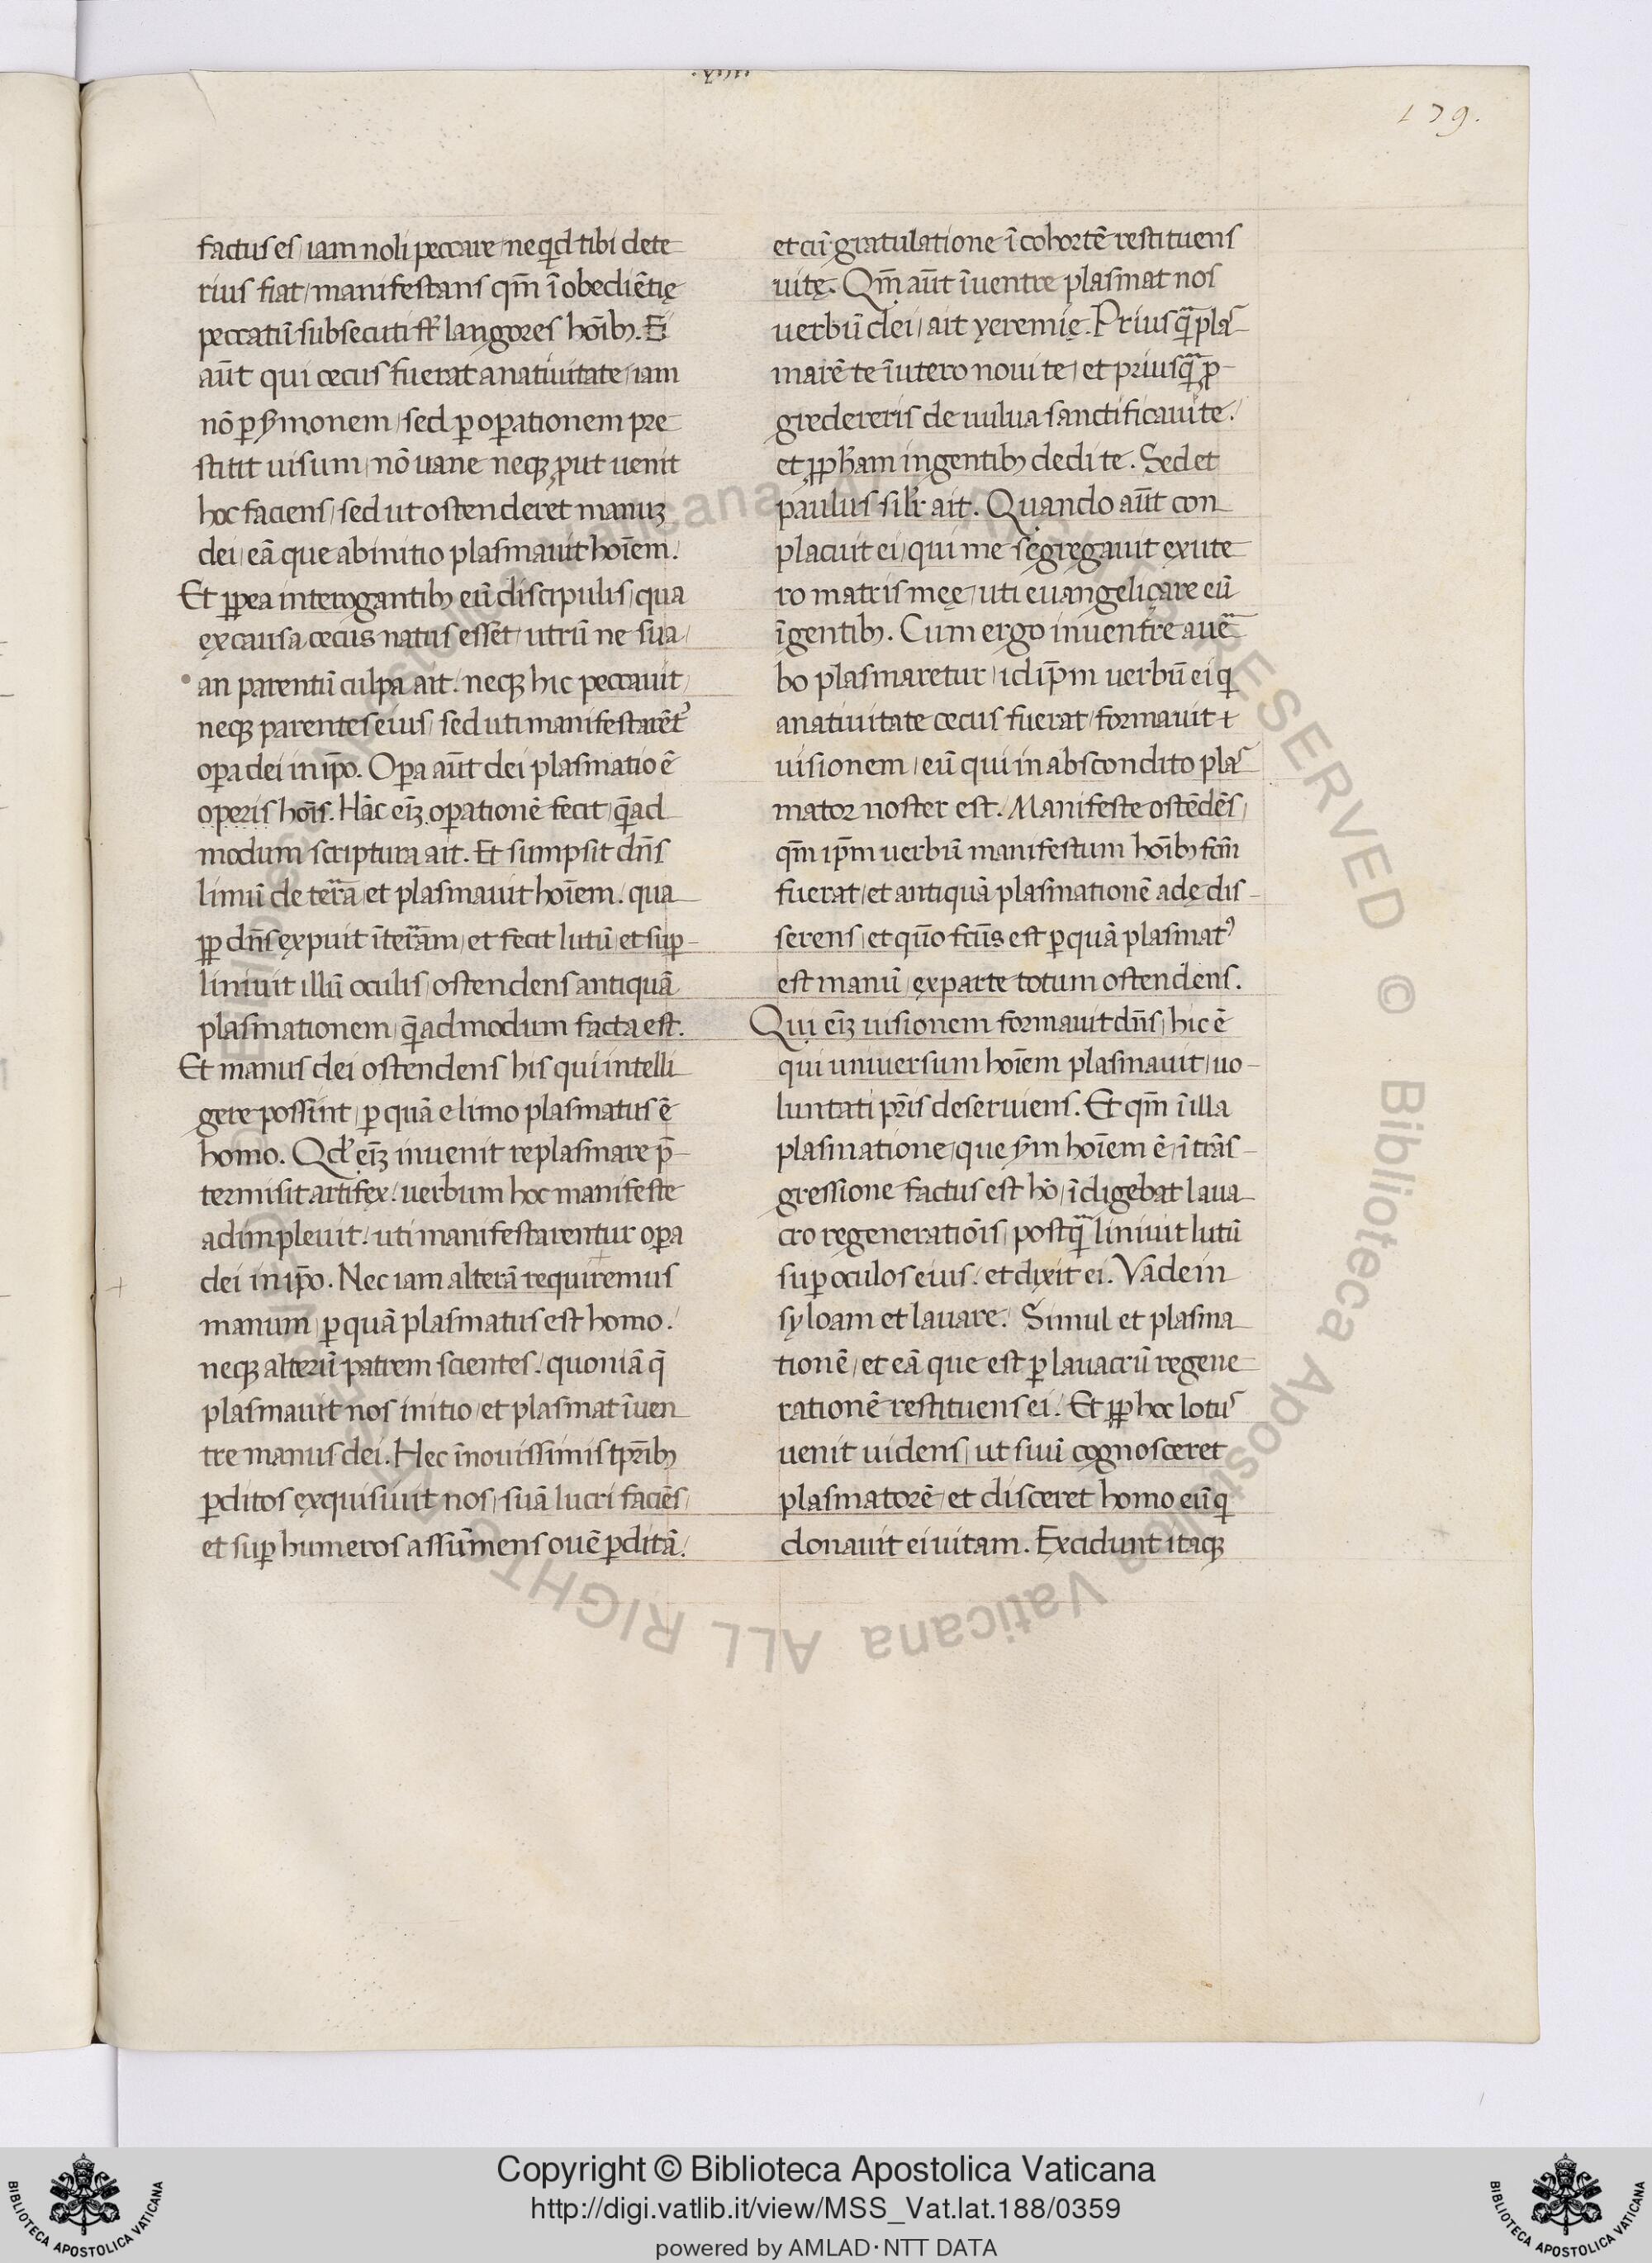 179.
factus es, iam noli peccare, ne qͥd tibi dete
rius fiat, manifestans qm̄ ī obediētię
peccatū subsecuti st̄ langores hoīb;. Ei
aūt qui cecus fuerat a natiuitate, iam
nō ꝑ s̄monem, sed ꝑ oꝑationem pre
stitit uisum, nō uane neqꝫ ꝓut uenit
hoc faciens, sed ut ostenderet manuꝫ
dei, eā que ab initio plasmauit hoīem.
Et ꝓpea interogantib; eū discipulis, qua
ex causa cecus natus esset, utrū ne sua,
an parentū culpa ait. neqꝫ hic peccauit,
neqꝫ parentes eius, sed uti manifestarēt᾿
oꝑa dei in ip̄o. Oꝑa aūt dei plasmatio ē
operis hoīs. Hāc eīꝫ oꝑationē fecit, qͣ̄ad
modum scriptura ait. Et sumpsit dn̄s
limū de terͣa, et plasmauit hoīem. qua
ꝓp dn̄s expuit ī terͣam, et fecit lutū, et suꝑ-
liniuit illū oculis, ostendens antiquā
plasmationem, qͣ̄admodum facta est.
Et manus dei ostendens his qui intelli
gere possint, ꝑ quā e limo plasmatus ē
homo. Qd' eīꝫ in uenit replasmare p̄-
termisit artifex. uerbum hoc manifeste
adimpleuit. uti manifestarentur oꝑa
dei in ip̄o. Nec iam alterā requiremus
manum, ꝑ quā plasmatus est homo.
neqꝫ alterū patrem scientes. quoniā q̄
plasmauit nos initio, et plasmat ī uen
tre manus dei. Hec ī nouissimis tp̄rib;
ꝑditos exquisiuit nos, suā lucri faciēs,
et suꝑ humeros assūmens ouē ꝑditā.
et cū gratulatione ī cohortē restituens
uitę. Qm̄ aūt ī uentre plasmat nos
uerbū dei, ait yeremię. Prius qͣ̄ plas
marē te ī utero noui te, et prius qͣ̄ ꝓ-
gredereris de uulua sanctificaui te.
et ꝓph'am in gentib; dedi te. Sed et
paulus silr̄ ait. Quando aūt con
placuit ei, qui me segregauit ex ute
ro matris meę, uti euangeliçare eū
ī gentib;. Cum ergo in uentre a uer
bo plasmaretur, id ip̄m uerbū ei qͥ
a natiuitate cecus fuerat, formauit t
uisionem, eū qui in abscondito plas
mator noster est. Manifeste ostēdēs,
qm̄ ip̄m uerbū manifestum hoīb; fcm̄
fuerat, et antiquā plasmationē adę dis-
serens, et quō fcūs est ꝑ quā plasmat᾿
est manū, ex parte totum ostendens.
Qui eīꝫ uisionem formauit dn̄s, hic ē
qui uniuersum hoīem plasmauit, uo-
luntati pr̄is deseruiens. Et qm̄ ī illa
plasmatione, que s̄m hoīem ē, ī trās-
gressione factus est hō, īdigebat laua
cro regenerationīs, postqͣ̄ liniuit lutū
suꝑ oculos eius. et dixit ei. Vāde in
syloam et lauare. Simul et plasma
tionē, et eā que est ꝑ lauacrū regene
rationē restituens ei. Et ꝓp hoc lotus
uenit uidens, ut suū cognosceret
plasmatorē, et disceret homo eū qͥ
donauit ei uitam. Excidunt itaqꝫ
Copyright © Biblioteca Apostolica Vaticana
http://digi.vatlib.it/view/MSS_Vat.lat.188/0359
powered by AMLAD·NTT DATA